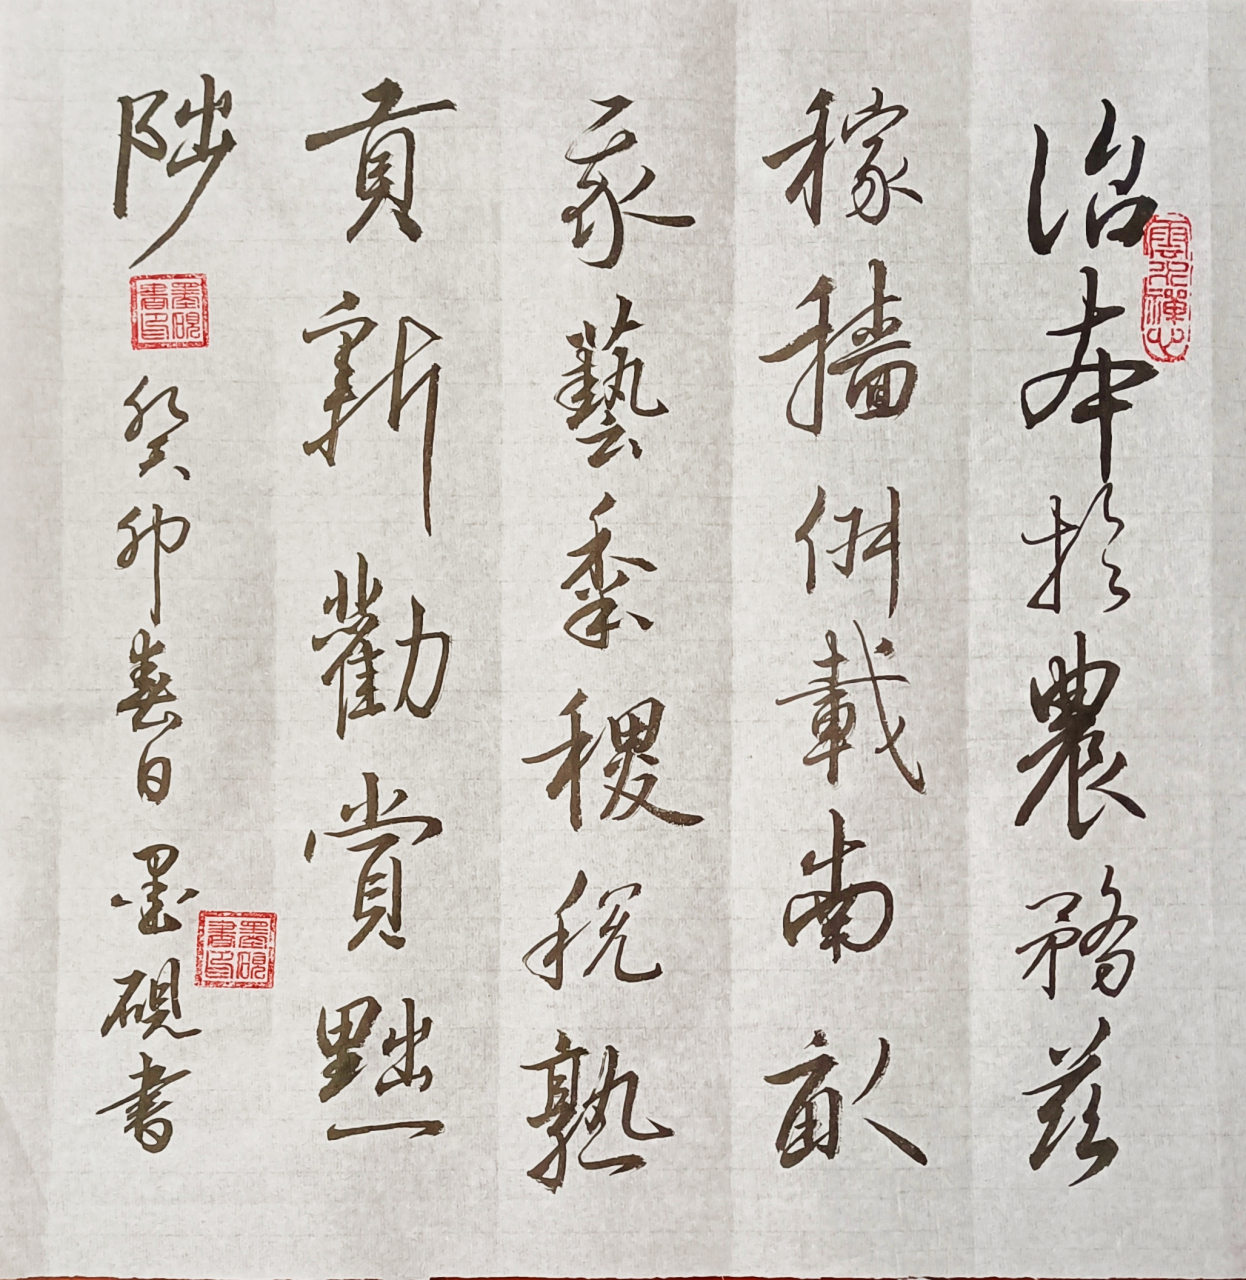 治本於農務茲
稼穡俶載南畝
我藝黍稷稅熟
貢新勸賞黜
陟
癸卯春日墨硯書
雲水禪心
墨硯書印
墨硯書印